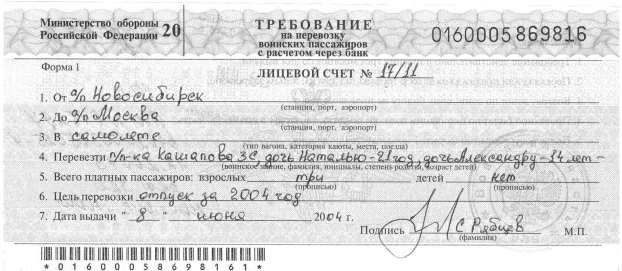 Министерство обороны
Российской Федерации 20
ТРЕБОВАНИЕ
на перевозку
воинских пассажиров
с расчетом через банк
0160005869816
Форма 1
ЛИЦЕВОЙ СЧЕТ № 17/11
1. От э/п Новосибирск
(станция, порт, аэропорт)
2. До э/п Москва
(станция, порт, аэропорт)
3. В самолете
(тип вагона, категория каюты, места, поезда)
4. Перевезти п/п-ка Кашапова ЗС, дочь Наталью-21 год, дочь Александру-14 лет-
(воинское звание, фамилия, инициалы, степень родства, возраст детей)
5. Всего платных пассажиров: взрослых три детей нет
(прописью) (прописью)
6. Цель перевозки отпуск за 2004 год
7. Дата выдачи "8" июня 2004 г.
Подпись С Рябцев М.П.
(фамилия)
*01600058698161*